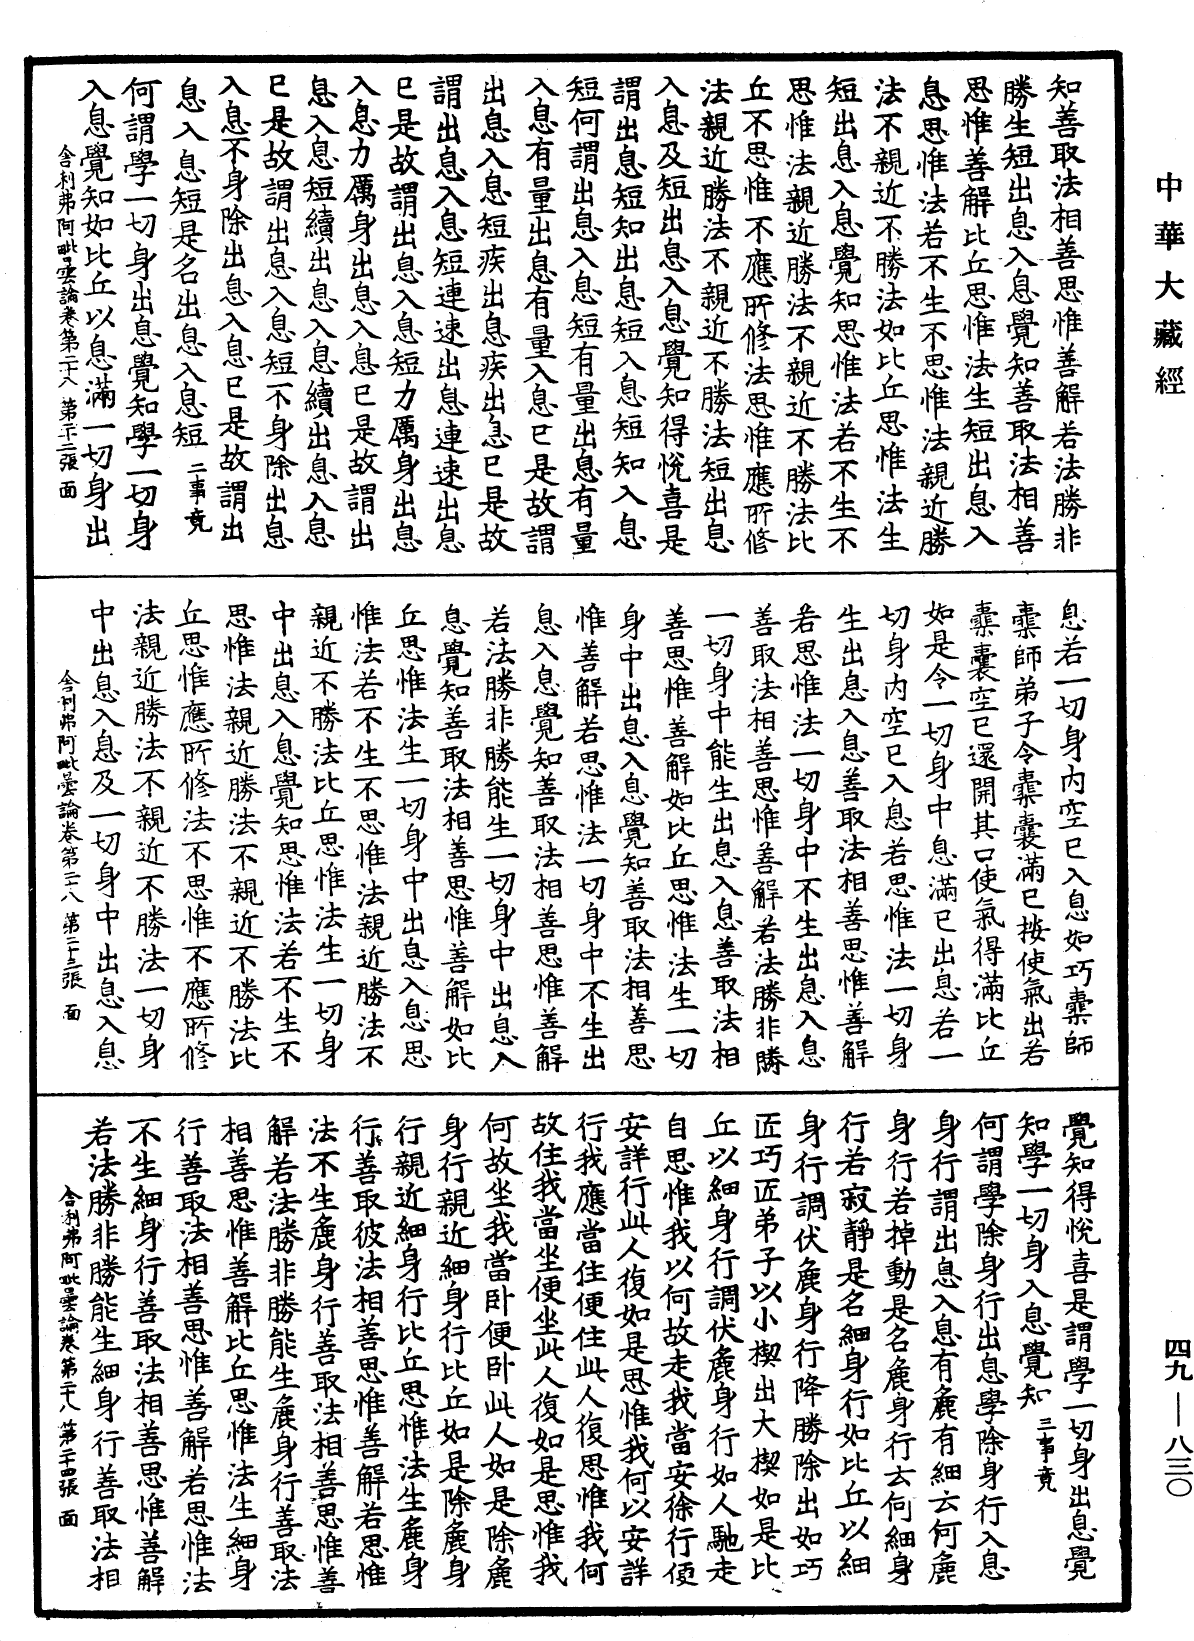 中華大藏經
知善取法相善思惟善解若法勝非
勝生短出息入息覺知善取法相善
思惟善解比丘思惟法生短出息入
息思惟法若不生不思惟法親近勝
法不親近不勝法如比丘思惟法生
短出息入息覺知思惟法若不生不
思惟法親近勝法不親近不勝法比
丘不思惟不應所修法思惟應所修
法親近勝法不親近不勝法短出息
入息及短出息入息覺知得悅喜是
謂出息短知出息短入息短知入息
短何謂出息入息短有量出息有量
入息有量出息有量入息已是故謂
出息入息短疾出息疾出息已是故
謂出息入息短連速出息連速出息
已是故謂出息入息短力厲身出息
入息力厲身出息入息已是故謂出
息入息短續出息入息續出息入息
已是故謂出息入息短不身除出息
入息不身除出息入息已是故謂出
息入息短是名出息入息短二事竟
何謂學一切身出息覺知學一切身
入息覺知如比丘以息滿一切身出
舍利弗阿毗曇論卷第二十八 第二十二張 面
息若一切身內空已入息如巧橐師
橐師弟子令橐囊滿已按使氣出若
橐囊空已還開其口使氣得滿比丘
如是令一切身中息滿已出息若一
切身內空已入息若思惟法一切身
生出息入息善取法相善思惟善解
若思惟法一切身中不生出息入息
善取法相善思惟善解若法勝非勝
一切身中能生出息入息善取法相
善思惟善解如比丘思惟法生一切
身中出息入息覺知善取法相善思
惟善解若思惟法一切身中不生出
息入息覺知善取法相善思惟善解
若法勝非勝能生一切身中出息入
息覺知善取法相善思惟善解如比
丘思惟法生一切身中出息入息思
惟法若不生不思惟法親近勝法不
親近不勝法比丘思惟法生一切身
中出息入息覺知思惟法若不生不
思惟法親近勝法不親近不勝法比
丘思惟應所修法不思惟不應所修
法親近勝法不親近不勝法一切身
中出息入息及一切身中出息入息
舍利弗阿毗曇論卷第二十八 第二十三張 面
覺知得悅喜是謂學一切身出息覺
知學一切身入息覺知三事竟
何謂學除身行出息學除身行入息
身行謂出息入息有麁有細云何麁
身行若掉動是名麁身行云何細身
行若寂靜是名細身行如比丘以細
身行調伏麁身行降勝除出如巧
匠巧匠弟子以小楔出大楔如是比
丘以細身行調伏麁身行如人馳走
自思惟我以何故走我當安徐行便
安詳行此人復如是思惟我何以安詳
行我應當住便住此人復思惟我何
故住我當坐便坐此人復如是思惟我
何故坐我當卧便卧此人如是除麁
身行親近細身行比丘如是除麁身
行親近細身行比丘思惟法生麁身
行善取彼法相善思惟善解若思惟
法不生麁身行善取法相善思惟善
解若法勝非勝能生麁身行善取法
相善思惟善解比丘思惟法生細身
行善取法相善思惟善解若思惟法
不生細身行善取法相善思惟善解
若法勝非勝能生細身行善取法相
舍利弗阿毗曇論卷第二十八 第二十四張 面
四九—八三〇